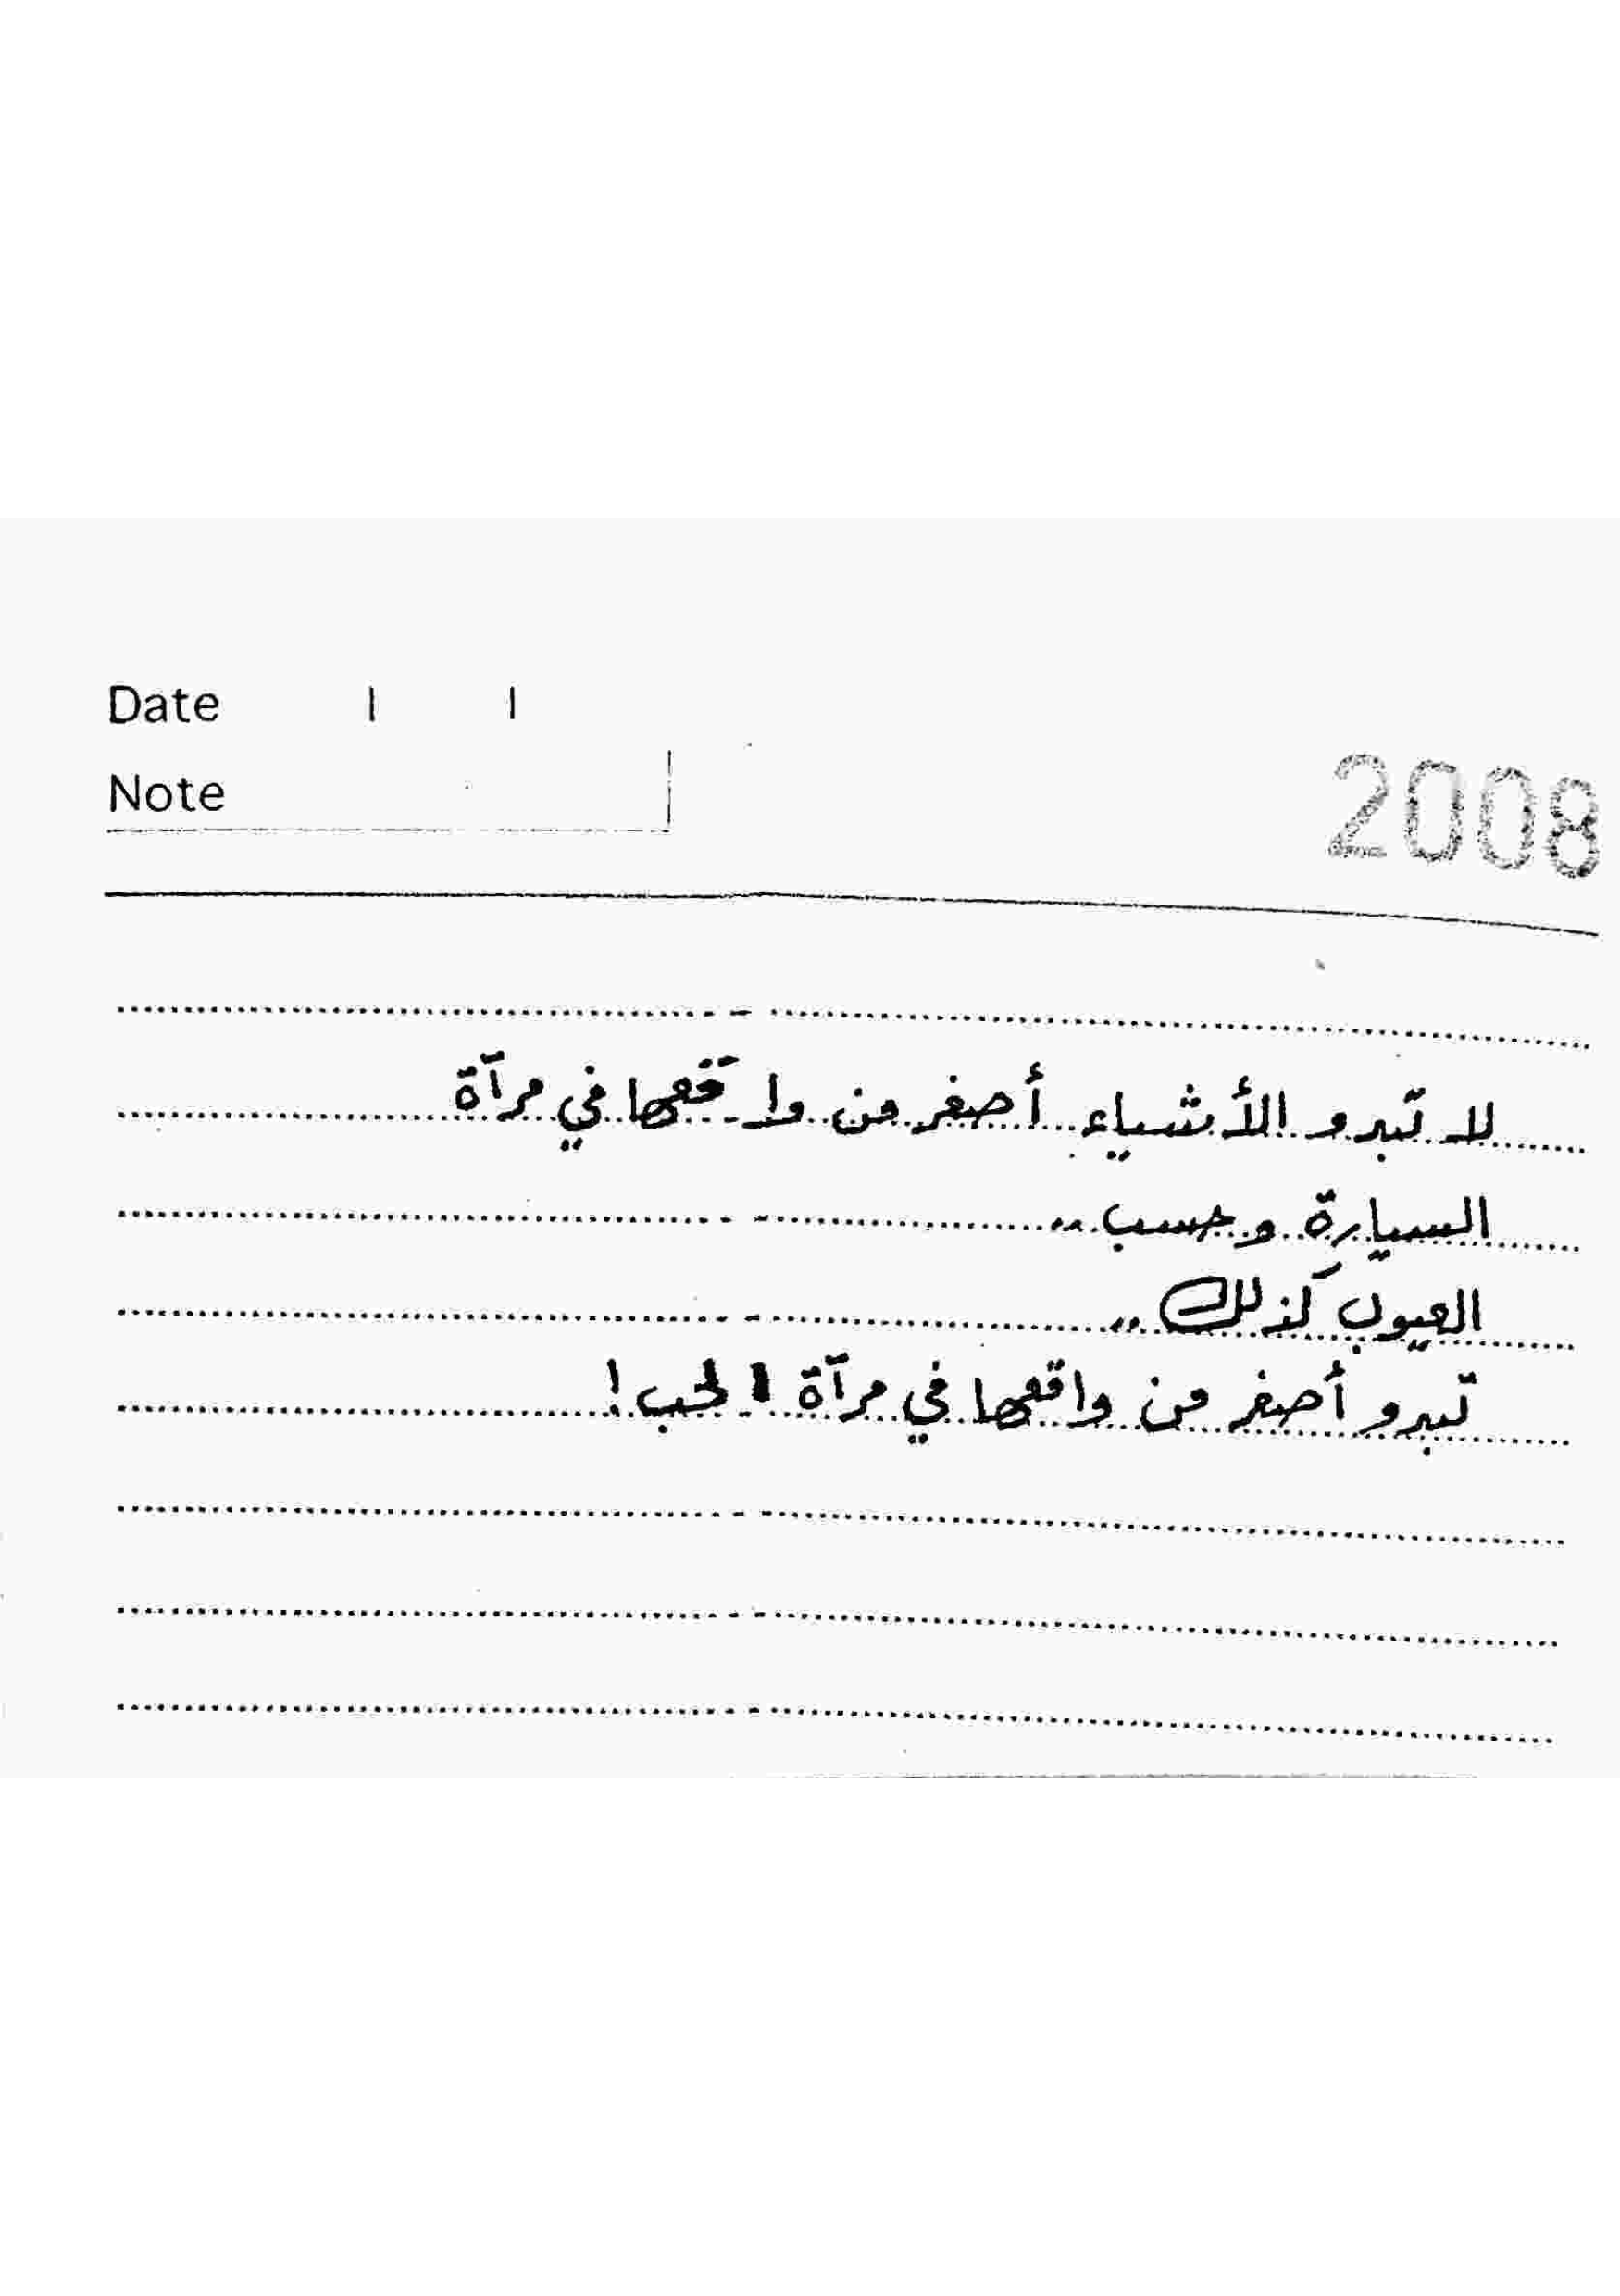 Date / /
Note
2008
لا تبدو الأشياء أصغر من واقعها في مرآة
السيارة وحسب ..
العيوب كذلك ..
تبدو أصغر من واقعها في مرآة الحب !